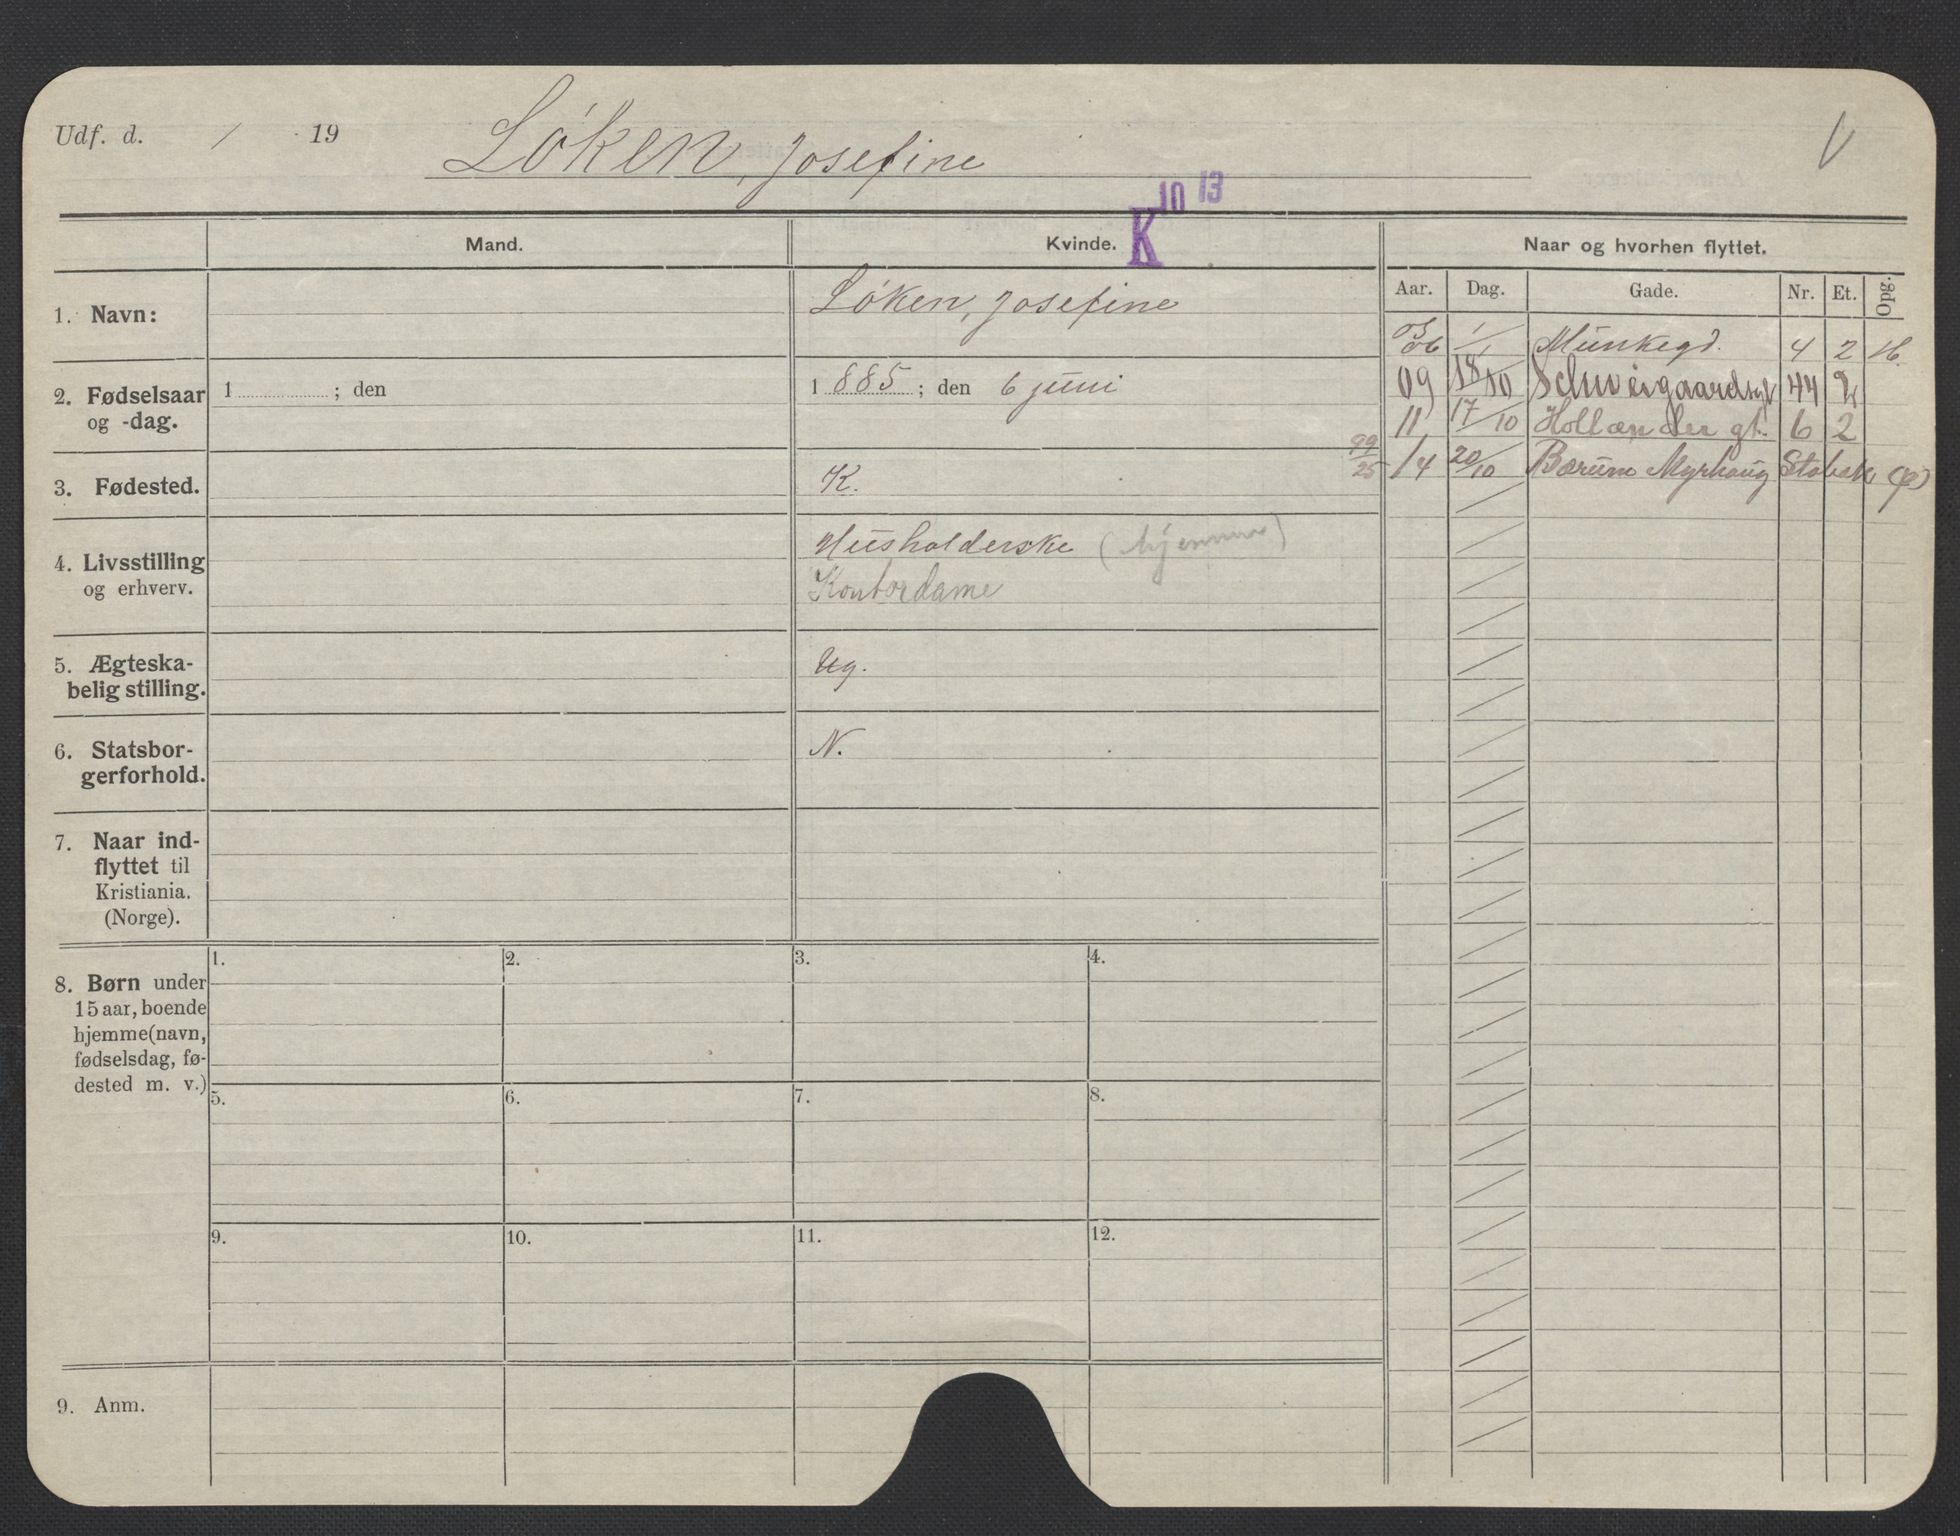 Udf. d. / 19
Løken, Josefine
V
K 10 13
Mand.
Kvinde.
Naar og hvorhen flyttet.
Aar. Dag. Gade. Nr. Et. Opg.
1. Navn:
Løken, Josefine
2. Fødselsaar
og -dag.
1 ; den
1 885 ; den 6 juni
3. Fødested.
K.
4. Livsstilling
og erhverv.
Husholderske (hjemme)
Kontordame
5. Ægteska-
belig stilling.
Ug.
6. Statsbor-
gerforhold.
N.
7. Naar ind-
flyttet til
Kristiania.
(Norge).
06 1/1 Munkegd. 4 2 H.
09 18/10 Schweigaardsgt 44 2
11 17/10 Hollændergt. 6 2
99/25 14 20/10 Bærum Myrhaug Stabæk (p)
8. Børn under
15 aar, boende
hjemme (navn,
fødselsdag, fø-
dested m. v.)
1. 2. 3. 4.
5. 6. 7. 8.
9. 10. 11. 12.
9. Anm.